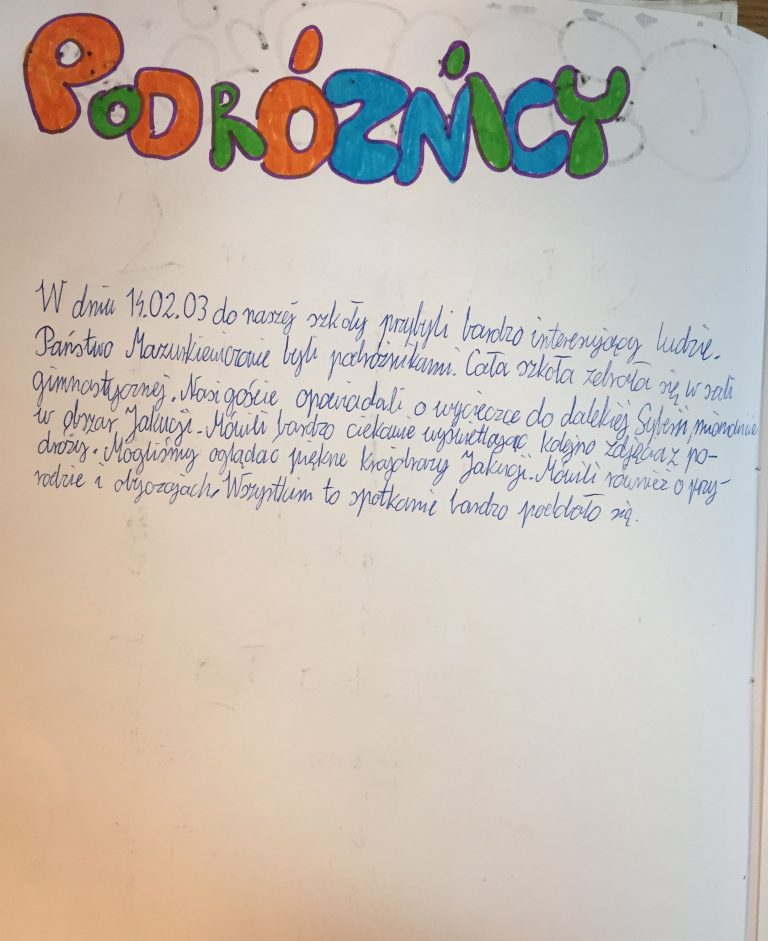 PODRÓŻNICY
W dniu 14.02.03 do naszej szkoły przybyli bardzo interesujący ludzie.
Państwo Mazurkiewiczowie byli podróżnikami. Cała szkoła zebrała się w sali
gimnastycznej. Nasi goście opowiadali o wycieczce do dalekiej Syberii, mianowicie
w obszar Jakucji. Mówili bardzo ciekawie wyświetlając kolejno zdjęcia z po-
dróży. Mogliśmy oglądać piękne krajobrazy Jakucji. Mówili również o przy-
rodzie i obyczajach. Wszystkim to spotkanie bardzo podobało się.